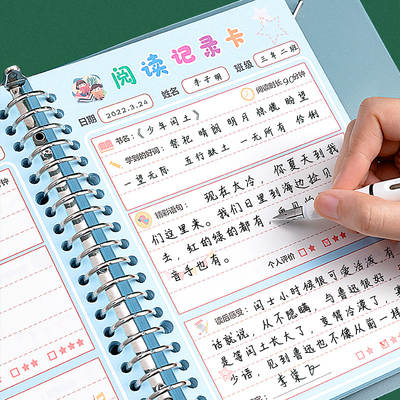 阅读记录卡
日期 2022.3.24 姓名 李子明 班级 三年二班
书名:《少年闰土》 阅读时长:90分钟
学到的好词: 祭祀 晴朗 明月
一望无际 五行缺土 一无所有 伶俐
精彩语句: 现在太冷,你夏天到我
们这里来。我们日里到海边捡贝
去,红的绿的都有,
也有。
个人评价
读后感受: 闰士小时候很可爱活泼,有
话就说,从不隐瞒,与鲁迅很好
是等闰土长大了,变得冷漠了,
少语,见到鲁迅也不像从前一样
钟